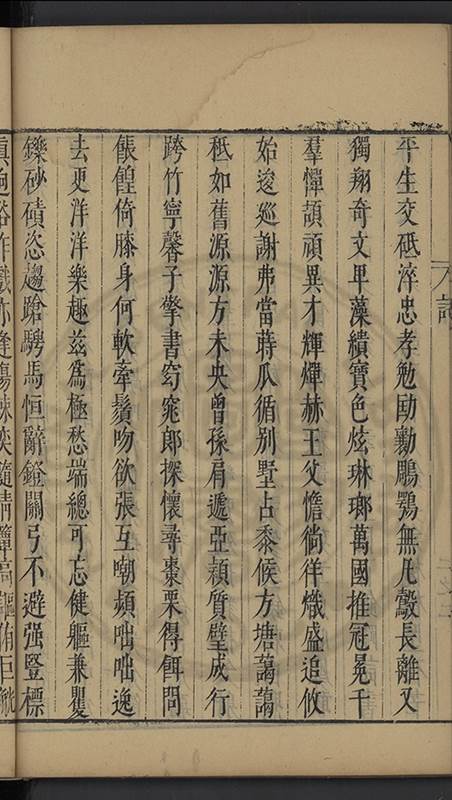 平生交砥淬忠孝勉勖勷鵰鶚無凡鷇長離又
獨翔奇文甲藻繢寶色炫琳瑯萬國推冠冕千
羣憚頡頏異才輝燀赫王父憺徜徉熾盛追攸
始逡巡謝弗當蒔瓜循別墅占黍候方塘藹藹
秪如舊源源方未央曾孫肩遞亞穎質璧成行
跨竹寧馨子擎書窈窕郎探懷尋棗栗得餌問
餦餭倚膝身何軟牽鬚吻欲張互嘲頻咄咄逸
去更洋洋樂趣茲爲極愁端總可忘健軀兼矍
鑠砂磧恣趨蹌騁馬恒辭鐙關弓不避强豎標